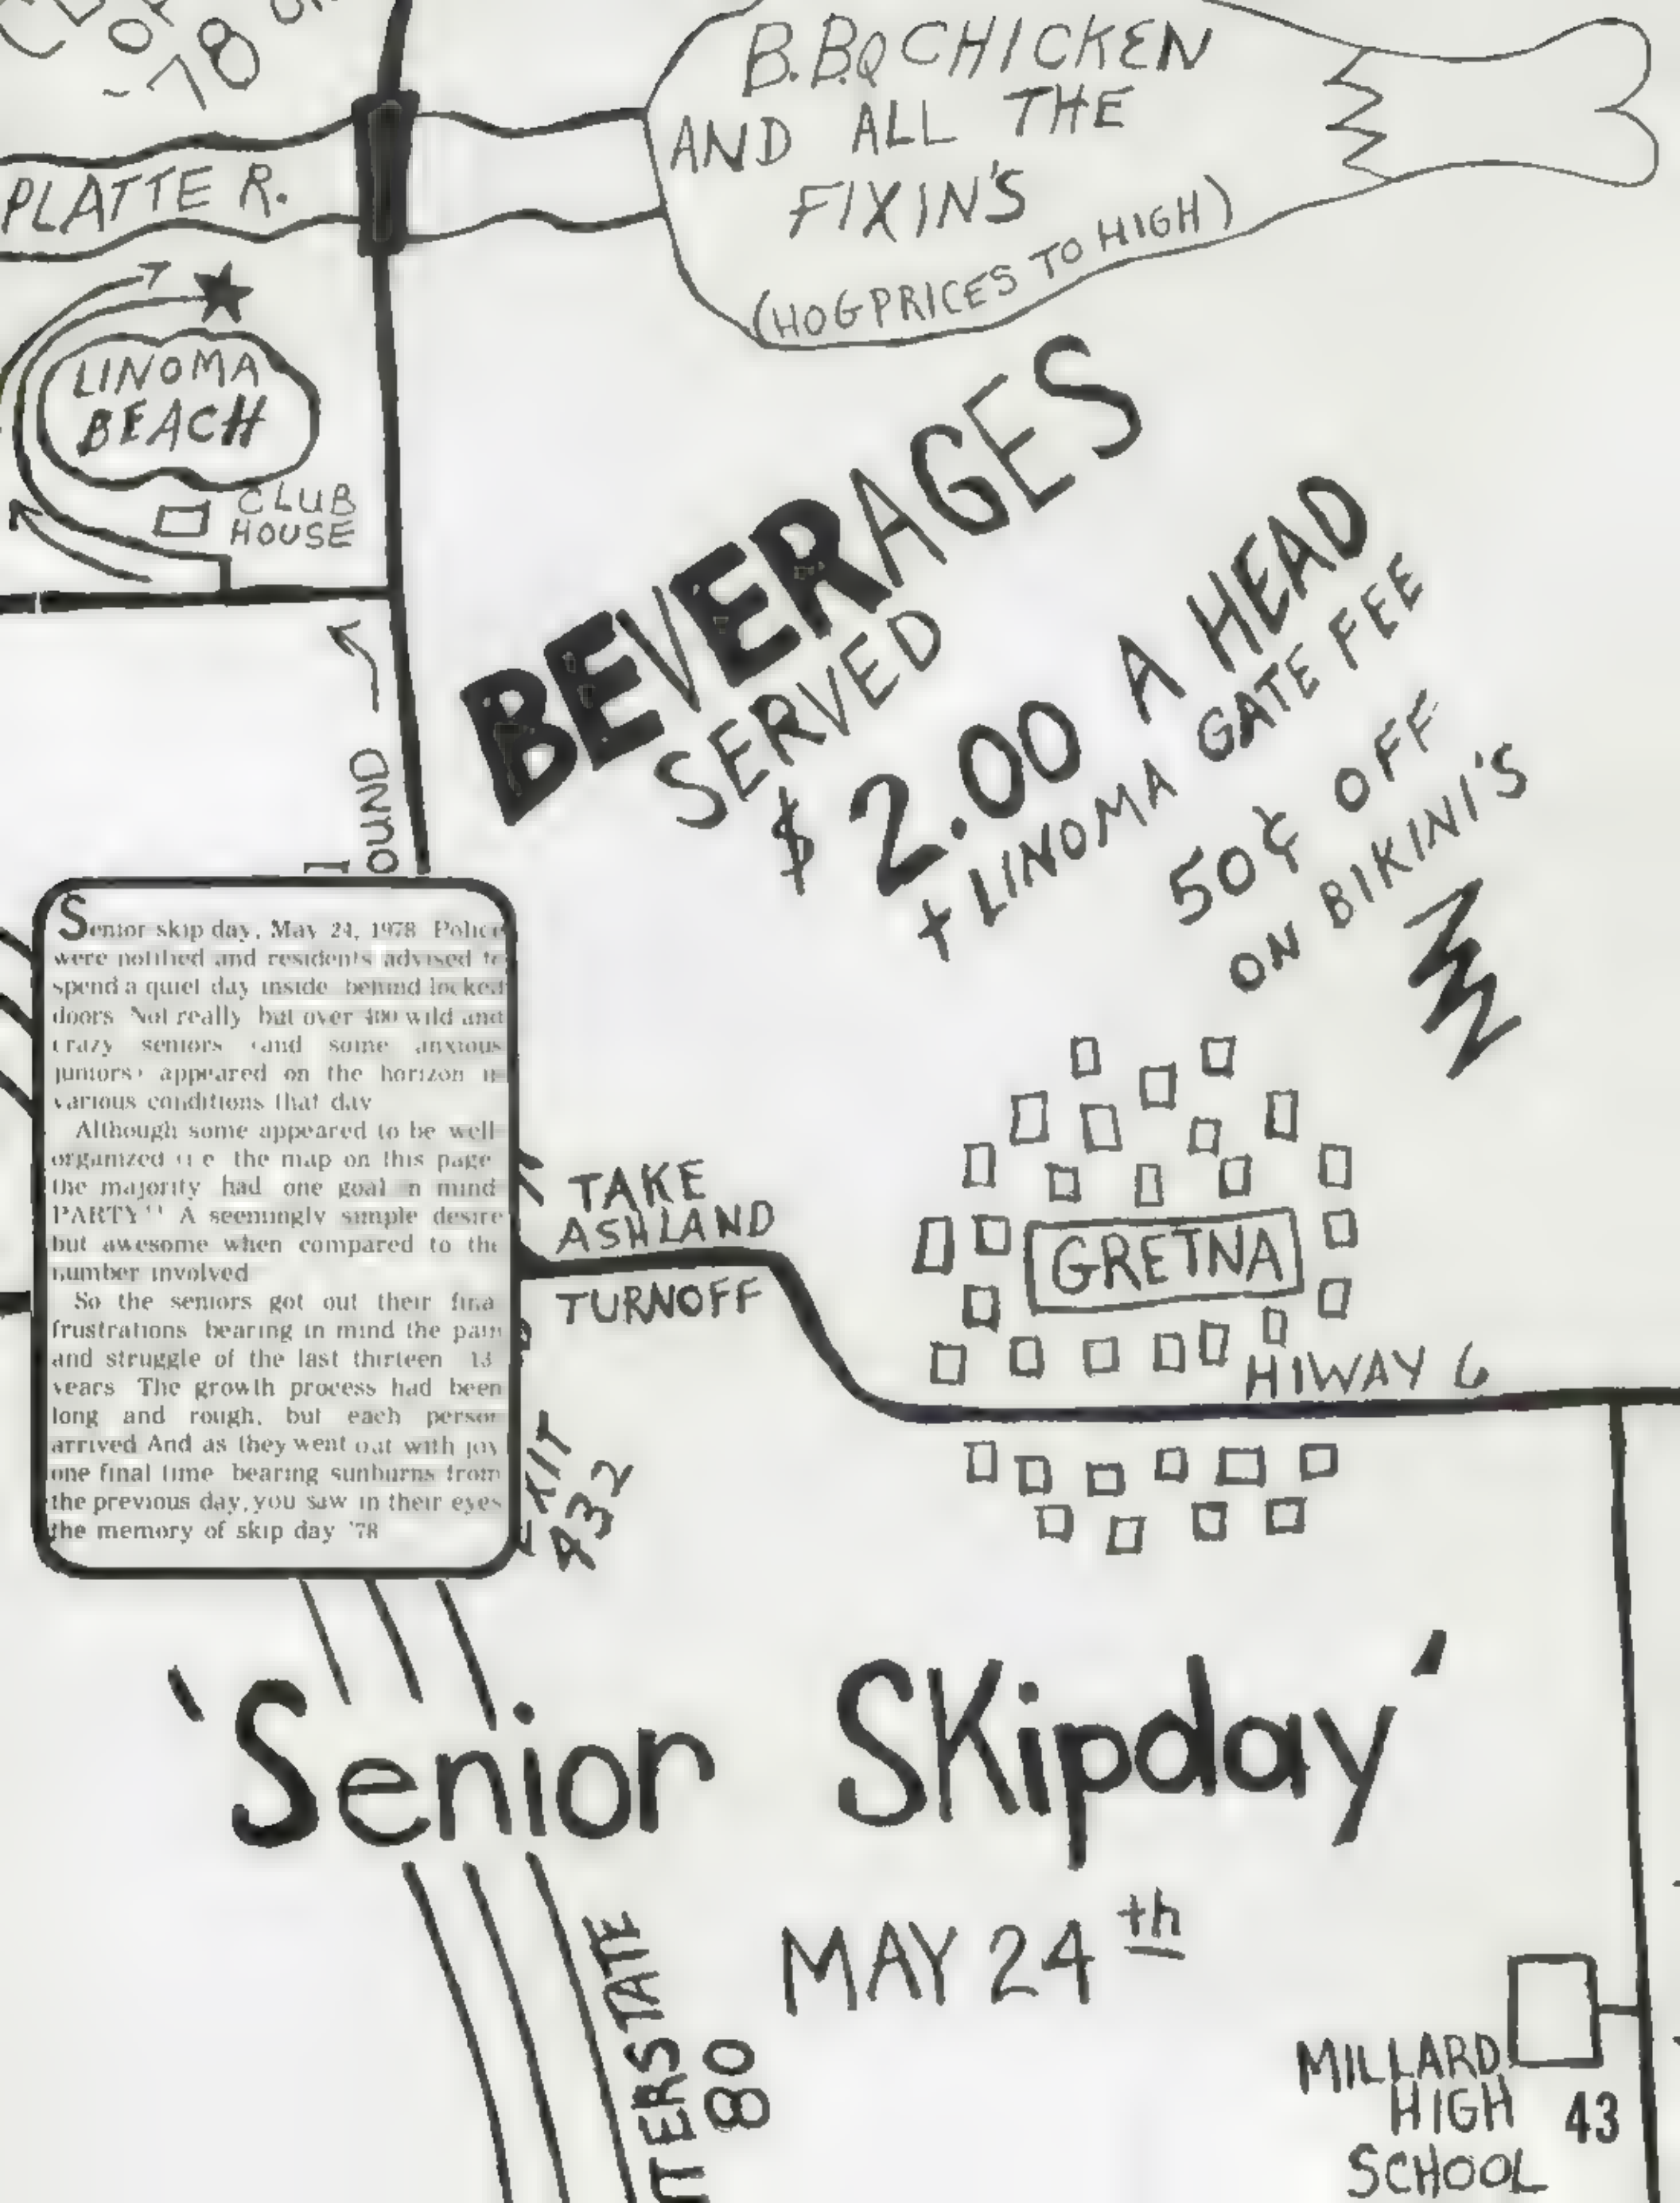 '78
B.B.Q CHICKEN
AND ALL THE
FIXIN'S
(HOG PRICES TO HIGH)
PLATTE R.
LINOMA
BEACH
CLUB
HOUSE
BEVERAGES
SERVED
$ 2.00 A HEAD
+ LINOMA GATE FEE
50¢ OFF
ON BIKINI'S
OUND
Senior skip day, May 24, 1978 Police
were notified and residents advised to
spend a quiet day inside behind locked
doors Not really but over 400 wild and
crazy seniors (and some anxious
juniors) appeared on the horizon in
various conditions that day
Although some appeared to be well
organized (i e the map on this page
the majority had one goal in mind
PARTY!! A seemingly simple desire
but awesome when compared to the
number involved
So the seniors got out their final
frustrations bearing in mind the pain
and struggle of the last thirteen 13
years The growth process had been
long and rough, but each person
arrived And as they went out with joy
one final time bearing sunburns from
the previous day, you saw in their eyes
the memory of skip day '78
TAKE
ASHLAND
TURNOFF
GRETNA
HIWAY 6
EXIT
432
'Senior SKipday'
MAY 24th
INTERSTATE
80
MILLARD
HIGH
SCHOOL
43